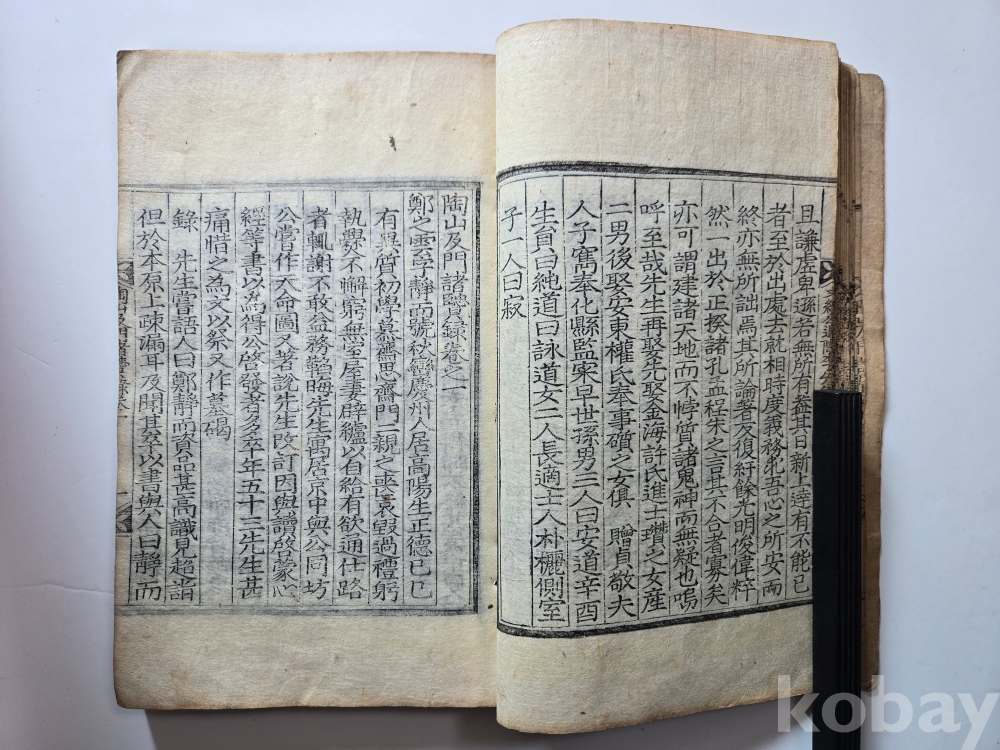 且謙虛卑遜若無所有盖其日新上達有不能已
者至於出處去就相時度義務牝吾心之所安而
終亦無所詘焉其所論著反復紆餘光明俊偉粹
然一出於正揆諸孔孟程朱之言其不合者寡矣
亦可謂建諸天地而不悖質諸鬼神而無疑也嗚
呼至哉先生再娶先娶金海許氏進士瓚之女産
二男後娶安東權氏奉事礩之女俱 贈貞敬夫
人子寯奉化縣監寀早世孫男三人曰安道辛酉
生員曰純道曰詠道女二人長適士人朴欐側室
子一人曰寂
陶山及門諸賢錄卷之一
鄭之雲字靜而號秋巒慶州人居高陽生正德己巳
有異質初學慕齋思齋門二親之喪哀毀過禮躬
執爨不懈窮無室屋妻辟纑以自給有欲通仕路
者輒謝不敢益務韜晦先生寓居京中與公同坊
公嘗作天命圖又著說先生改訂因與讀啓蒙心
經等書以爲得公啓發者多卒年五十三先生甚
痛暗之爲文以祭又作墓碣
錄 先生嘗語人曰鄭靜而資品甚高識見超詣
但於本原上疎漏耳及聞其卒以書與人曰靜而
kobay